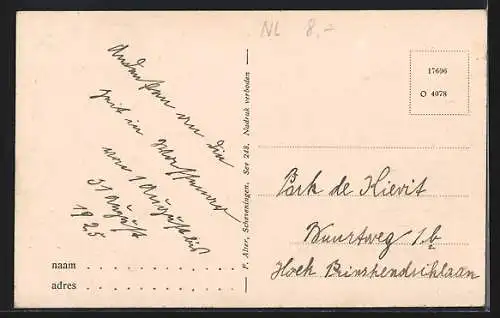 NL 8.-
Andenken an die
Zeit in Wassenaar
von 1 August bis
31 August
1925
naam
adres
P. Alter, Scheveningen, Ser 248. Nadruk verboden
17696
O 4078
Park de Kievit
Buurtweg 1b
Hoek Prinshendriklaan